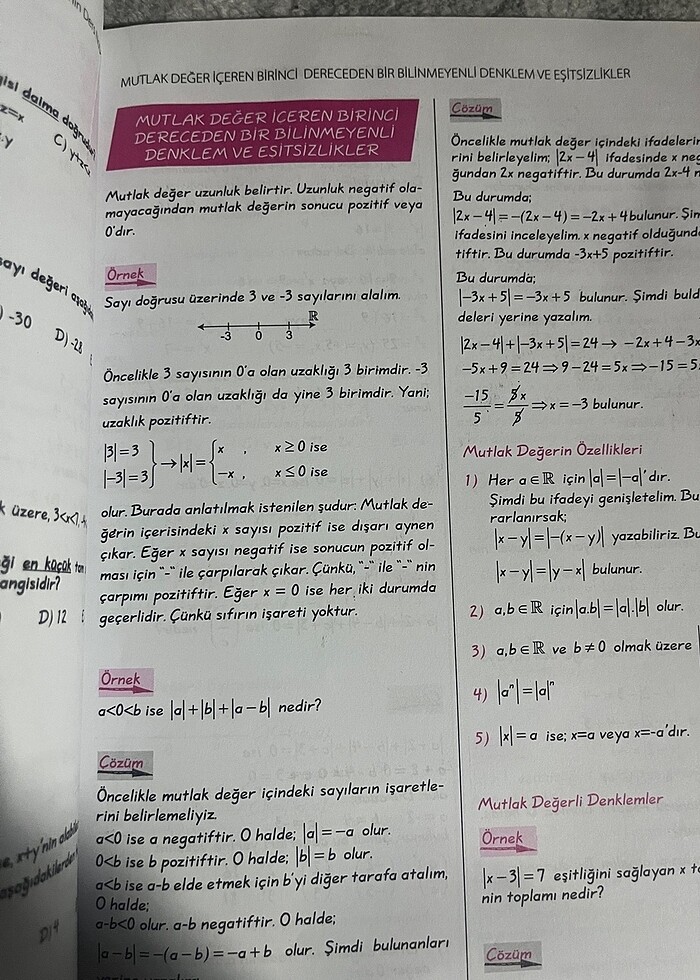 MUTLAK DEĞER İÇEREN BİRİNCİ DERECEDEN BİR BİLİNMEYENLİ DENKLEM VE EŞİTSİZLİKLER
MUTLAK DEĞER İÇEREN BİRİNCİ
DERECEDEN BİR BİLİNMEYENLİ
DENKLEM VE EŞİTSİZLİKLER
Mutlak değer uzunluk belirtir. Uzunluk negatif ola-
mayacağından mutlak değerin sonucu pozitif veya
0'dır.
Örnek
Sayı doğrusu üzerinde 3 ve -3 sayılarını alalım.
ℝ
-3 0 3
Öncelikle 3 sayısının 0'a olan uzaklığı 3 birimdir. -3
sayısının 0'a olan uzaklığı da yine 3 birimdir. Yani;
uzaklık pozitiftir.
|3|=3
|-3|=3} → |x|={ x , x≥0 ise
-x , x≤0 ise
olur. Burada anlatılmak istenilen şudur: Mutlak de-
ğerin içerisindeki x sayısı pozitif ise dışarı aynen
çıkar. Eğer x sayısı negatif ise sonucun pozitif ol-
ması için "-" ile çarpılarak çıkar. Çünkü, "-" ile "-" nin
çarpımı pozitiftir. Eğer x = 0 ise her iki durumda
geçerlidir. Çünkü sıfırın işareti yoktur.
Örnek
a<0<b ise |a|+|b|+|a-b| nedir?
Çözüm
Öncelikle mutlak değer içindeki sayıların işaretle-
rini belirlemeliyiz.
a<0 ise a negatiftir. O halde; |a|=-a olur.
0<b ise b pozitiftir. O halde; |b|=b olur.
a<b ise a-b elde etmek için b'yi diğer tarafa atalım,
O halde;
a-b<0 olur. a-b negatiftir. O halde;
|a-b|=-(a-b)=-a+b olur. Şimdi bulunanları
Çözüm
Öncelikle mutlak değer içindeki ifadelerin
rini belirleyelim; |2x-4| ifadesinde x neg
ğundan 2x negatiftir. Bu durumda 2x-4 n
Bu durumda;
|2x-4|=-(2x-4)=-2x+4 bulunur. Şim
ifadesini inceleyelim. x negatif olduğunda
tiftir. Bu durumda -3x+5 pozitiftir.
Bu durumda;
|-3x+5|=-3x+5 bulunur. Şimdi buld
deleri yerine yazalım.
|2x-4|+|-3x+5|=24 → -2x+4-3x
-5x+9=24⇒9-24=5x⇒-15=5
-15/5 = 5x/5 ⇒ x=-3 bulunur.
Mutlak Değerin Özellikleri
1) Her a∈ℝ için |a|=|-a|'dır.
Şimdi bu ifadeyi genişletelim. Bu
rarlanırsak;
|x-y|=|-(x-y)| yazabiliriz. Bu
|x-y|=|y-x| bulunur.
2) a,b∈ℝ için |a.b|=|a|.|b| olur.
3) a,b∈ℝ ve b≠0 olmak üzere
4) |aⁿ|=|a|ⁿ
5) |x|=a ise; x=a veya x=-a'dır.
Mutlak Değerli Denklemler
Örnek
|x-3|=7 eşitliğini sağlayan x
nin toplamı nedir?
Çözüm
daima
z=x
sayı değeri
-30 D) -28
k üzere, 3<x<7,
en küçük
angisidir?
D) 12
x+y'nin
aşağıdakilerden
D) 4